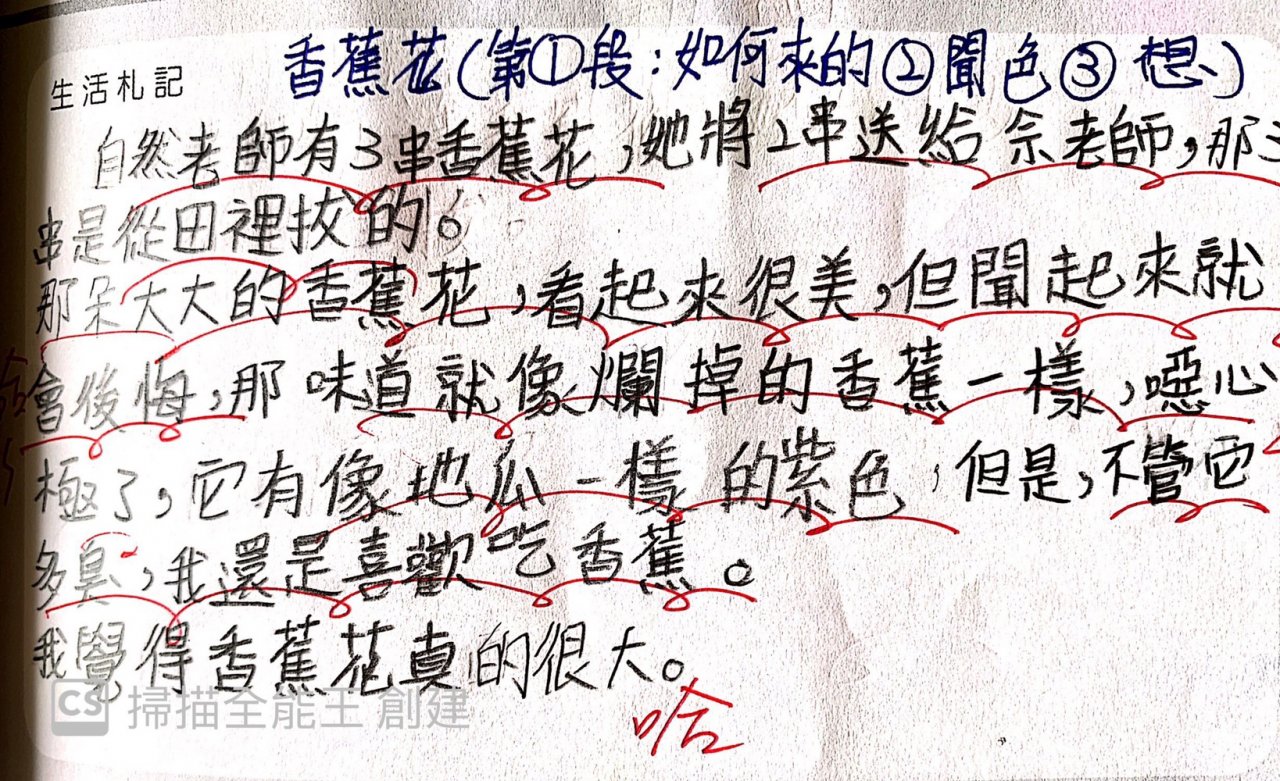 香蕉花(第①段:如何來的②聞色③想)
生活札記
自然老師有3串香蕉花,她將2串送給余老師,那3
串是從田裡拔的。
那朵大大的香蕉花,看起來很美,但聞起來就
會後悔,那味道就像爛掉的香蕉一樣,噁心
極了,它有像地瓜一樣的紫色,但是,不管它
多臭,我還是喜歡吃香蕉。
我覺得香蕉花真的很大。
哈
CS 掃描全能王 創建